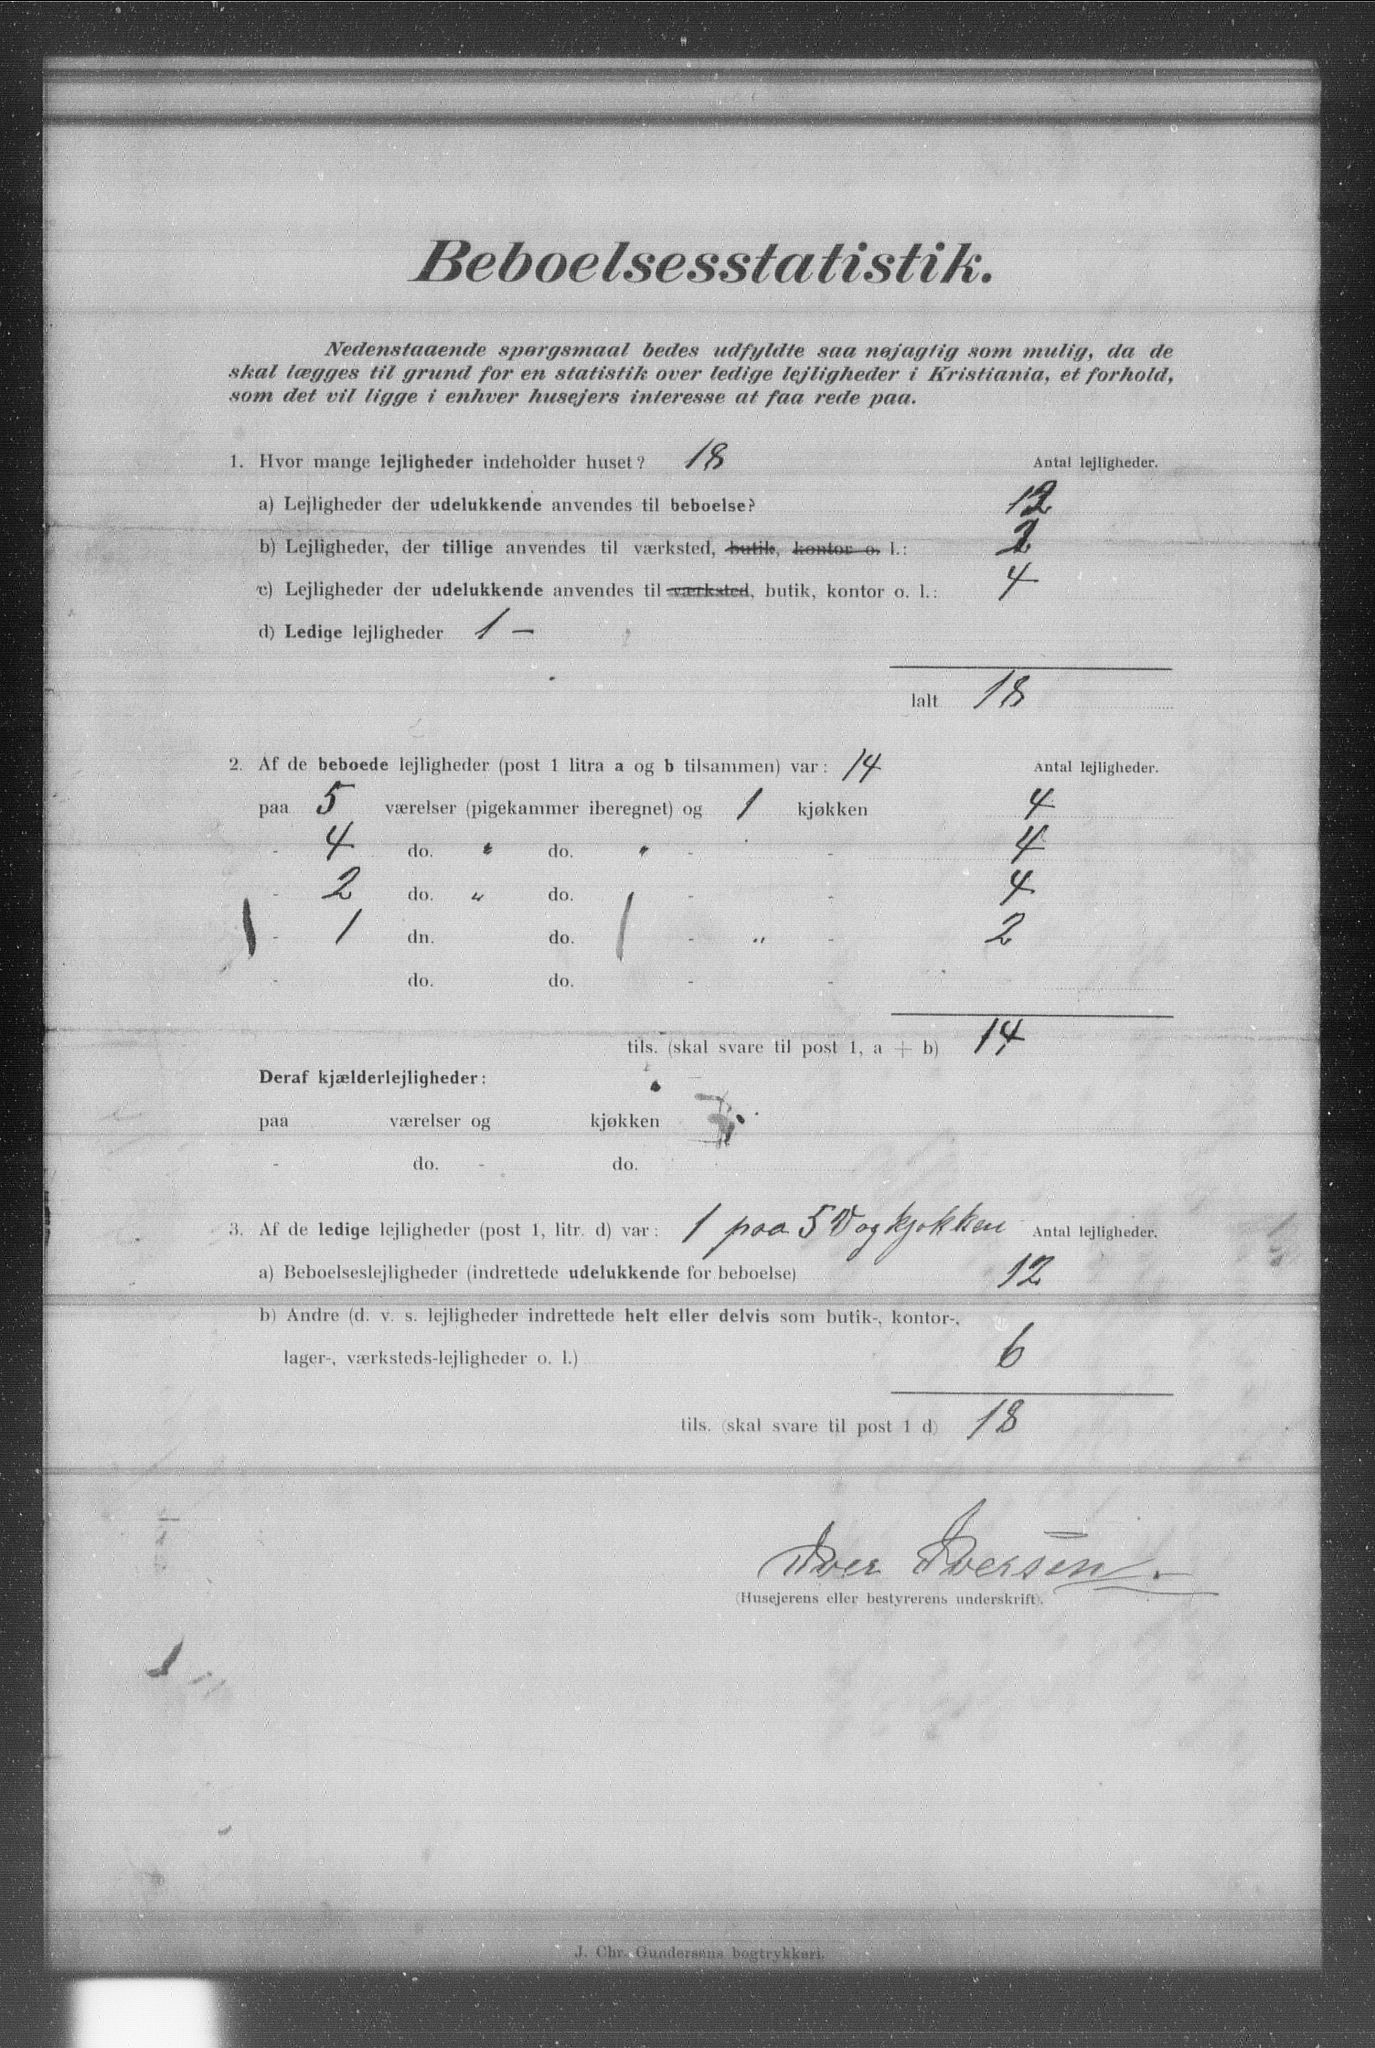 Beboelsesstatistik.
Nedenstaaende spørgsmaal bedes udfyldte saa nøjagtig som mulig, da de
skal lægges til grund for en statistik over ledige lejligheder i Kristiania, et forhold,
som det vil ligge i enhver husejers interesse at faa rede paa.
1. Hvor mange lejligheder indeholder huset? 18 Antal lejligheder.
a) Lejligheder der udelukkende anvendes til beboelse? 12
b) Lejligheder, der tillige anvendes til værksted, butik, kontor o. l.: 2
c) Lejligheder der udelukkende anvendes til værksted, butik, kontor o. l.: 4
d) Ledige lejligheder 1 —
Ialt 18
2. Af de beboede lejligheder (post 1 litra a og b tilsammen) var: 14 Antal lejligheder.
paa 5 værelser (pigekammer iberegnet) og 1 kjøkken 4
- 4 do. " do. " - - 4
- 2 do. " do. - - 4
- 1 dn. do. - " - 2
- do. do. - -
tils. (skal svare til post 1, a + b) 14
Deraf kjælderlejligheder:
paa værelser og kjøkken
- do. - do.
3. Af de ledige lejligheder (post 1, litr. d) var: 1 paa 5 V og kjøkken Antal lejligheder.
a) Beboelseslejligheder (indrettede udelukkende for beboelse) 12
b) Andre (d. v. s. lejligheder indrettede helt eller delvis som butik-, kontor-,
lager-, værksteds-lejligheder o. l.) 6
tils. (skal svare til post 1 d) 18
Iver Iversen
(Husejerens eller bestyrerens underskrift).
J. Chr. Gundersens bogtrykkeri.